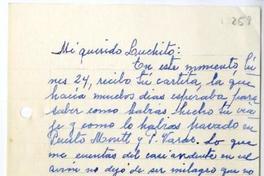 258
Mi querido Luchito:
En este momento, lu-
nes 24, recibo tu cartita, la que
hacía muchos días esperaba para
saber como habías hecho tu via-
je y como lo habías pasado en
Puerto Montt y P. Varas. Lo que
me cuentas del casi accidente en el
avión no dejo de ser milagro que no